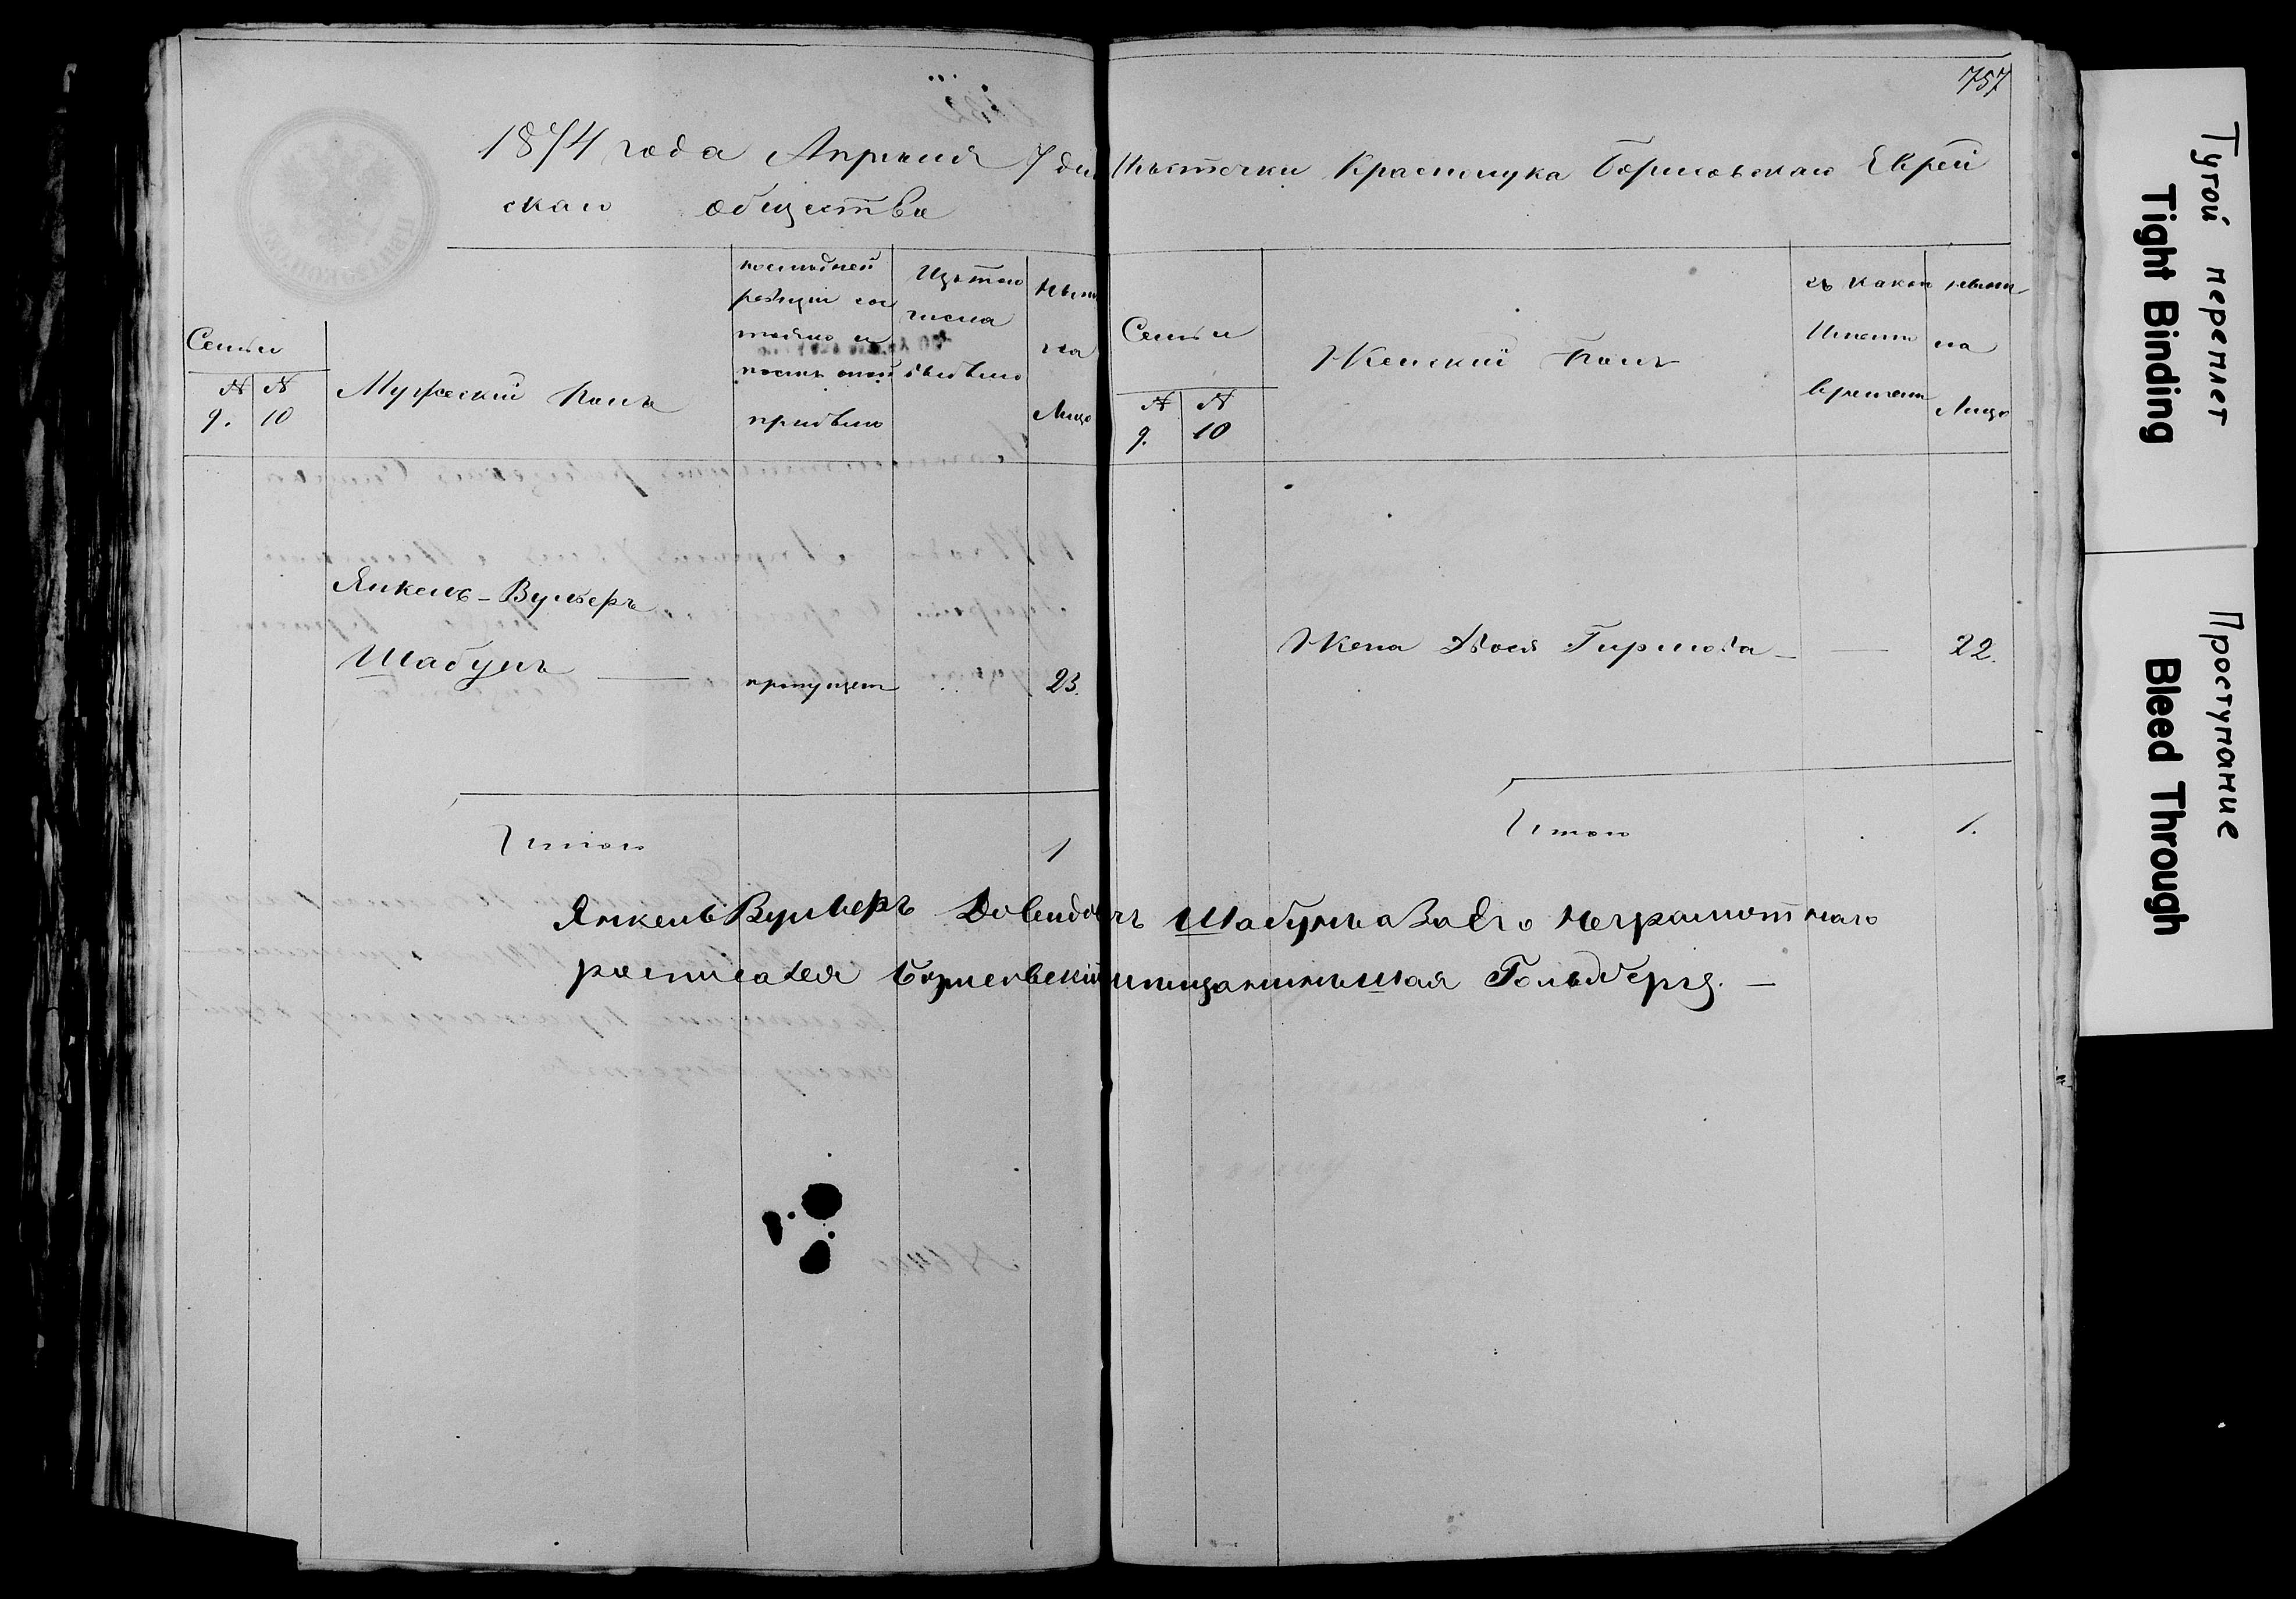 757
1874 года Апреля 7 дня Мѣстечки Краснолука Борисовскаго Еврей
скаго общества
Семьи
№ 9.
№ 10
Мужеский Полъ
последней
ревизіи сос
тояло и
послѣ оной
прибыло
Изъ того
числа
выбыло
Нынѣ
на
Лицо
Семьи
№ 9.
№ 10
Женский Полъ
съ какого
времени
на
Лицо
Янкель-Вульфъ
Шабунъ — пропущен 23.
Жена Двося Гиршова — — 22.
Итого 1
Итого 1.
Янкель Вульфъ Довидовъ Шабунъ а За Его Неграмотнаго
росписался Борисовскій мещанинъ Шая Гольдбергъ. —
Тугой переплет
Tight Binding
Проступание
Bleed Through